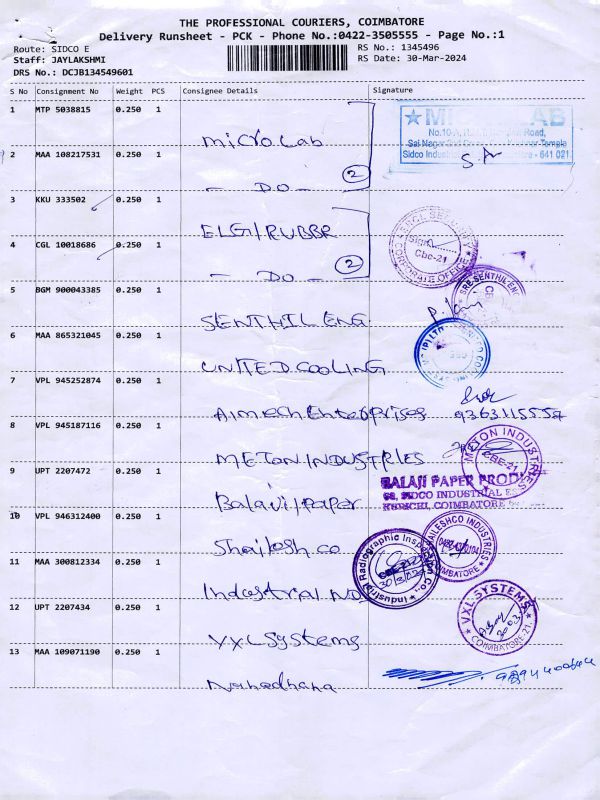 THE PROFESSIONAL COURIERS, COIMBATORE
Delivery Runsheet - PCK - Phone No.:0422-3505555 - Page No.:1
Route: SIDCO E
RS No.: 1345496
Staff: JAYLAKSHMI
RS Date: 30-Mar-2024
DRS No.: DCJB134549601
S No Consignment No Weight PCS Consignee Details Signature
1 MTP 5038815 0.250 1
Micro Lab
2 MAA 108217531 0.250 1
- DO -
2
3 KKU 333502 0.250 1
ELGI/RUBBR
4 CGL 10018686 0.250 1
- DO -
2
CORPORATE OFFICE
Cbe-21
5 BGM 900043385 0.250 1
SENTHIL ENG
SRE SENTHIL EN
6 MAA 865321045 0.250 1
UNITED COOLING
7 VPL 945252874 0.250 1
Aimech Enterprises 9363115557
8 VPL 945187116 0.250 1
METON INDUSTRIES
METON INDUSTRIES
CBE-21
9 UPT 2207472 0.250 1
Balaji/paper
BALAJI PAPER PROD
SIDCO INDUSTRIAL
KURICHI, COIMBATORE
10 VPL 946312400 0.250 1
Shailesh.co
SHAILESHCO INDUSTRIES
COIMBATORE
11 MAA 300812334 0.250 1
Industrial ND
Industrial Radiographic Inspection Co.,
12 UPT 2207434 0.250 1
VXL Systems
VXL SYSTEMS
COIMBATORE-21.
13 MAA 109071190 0.250 1